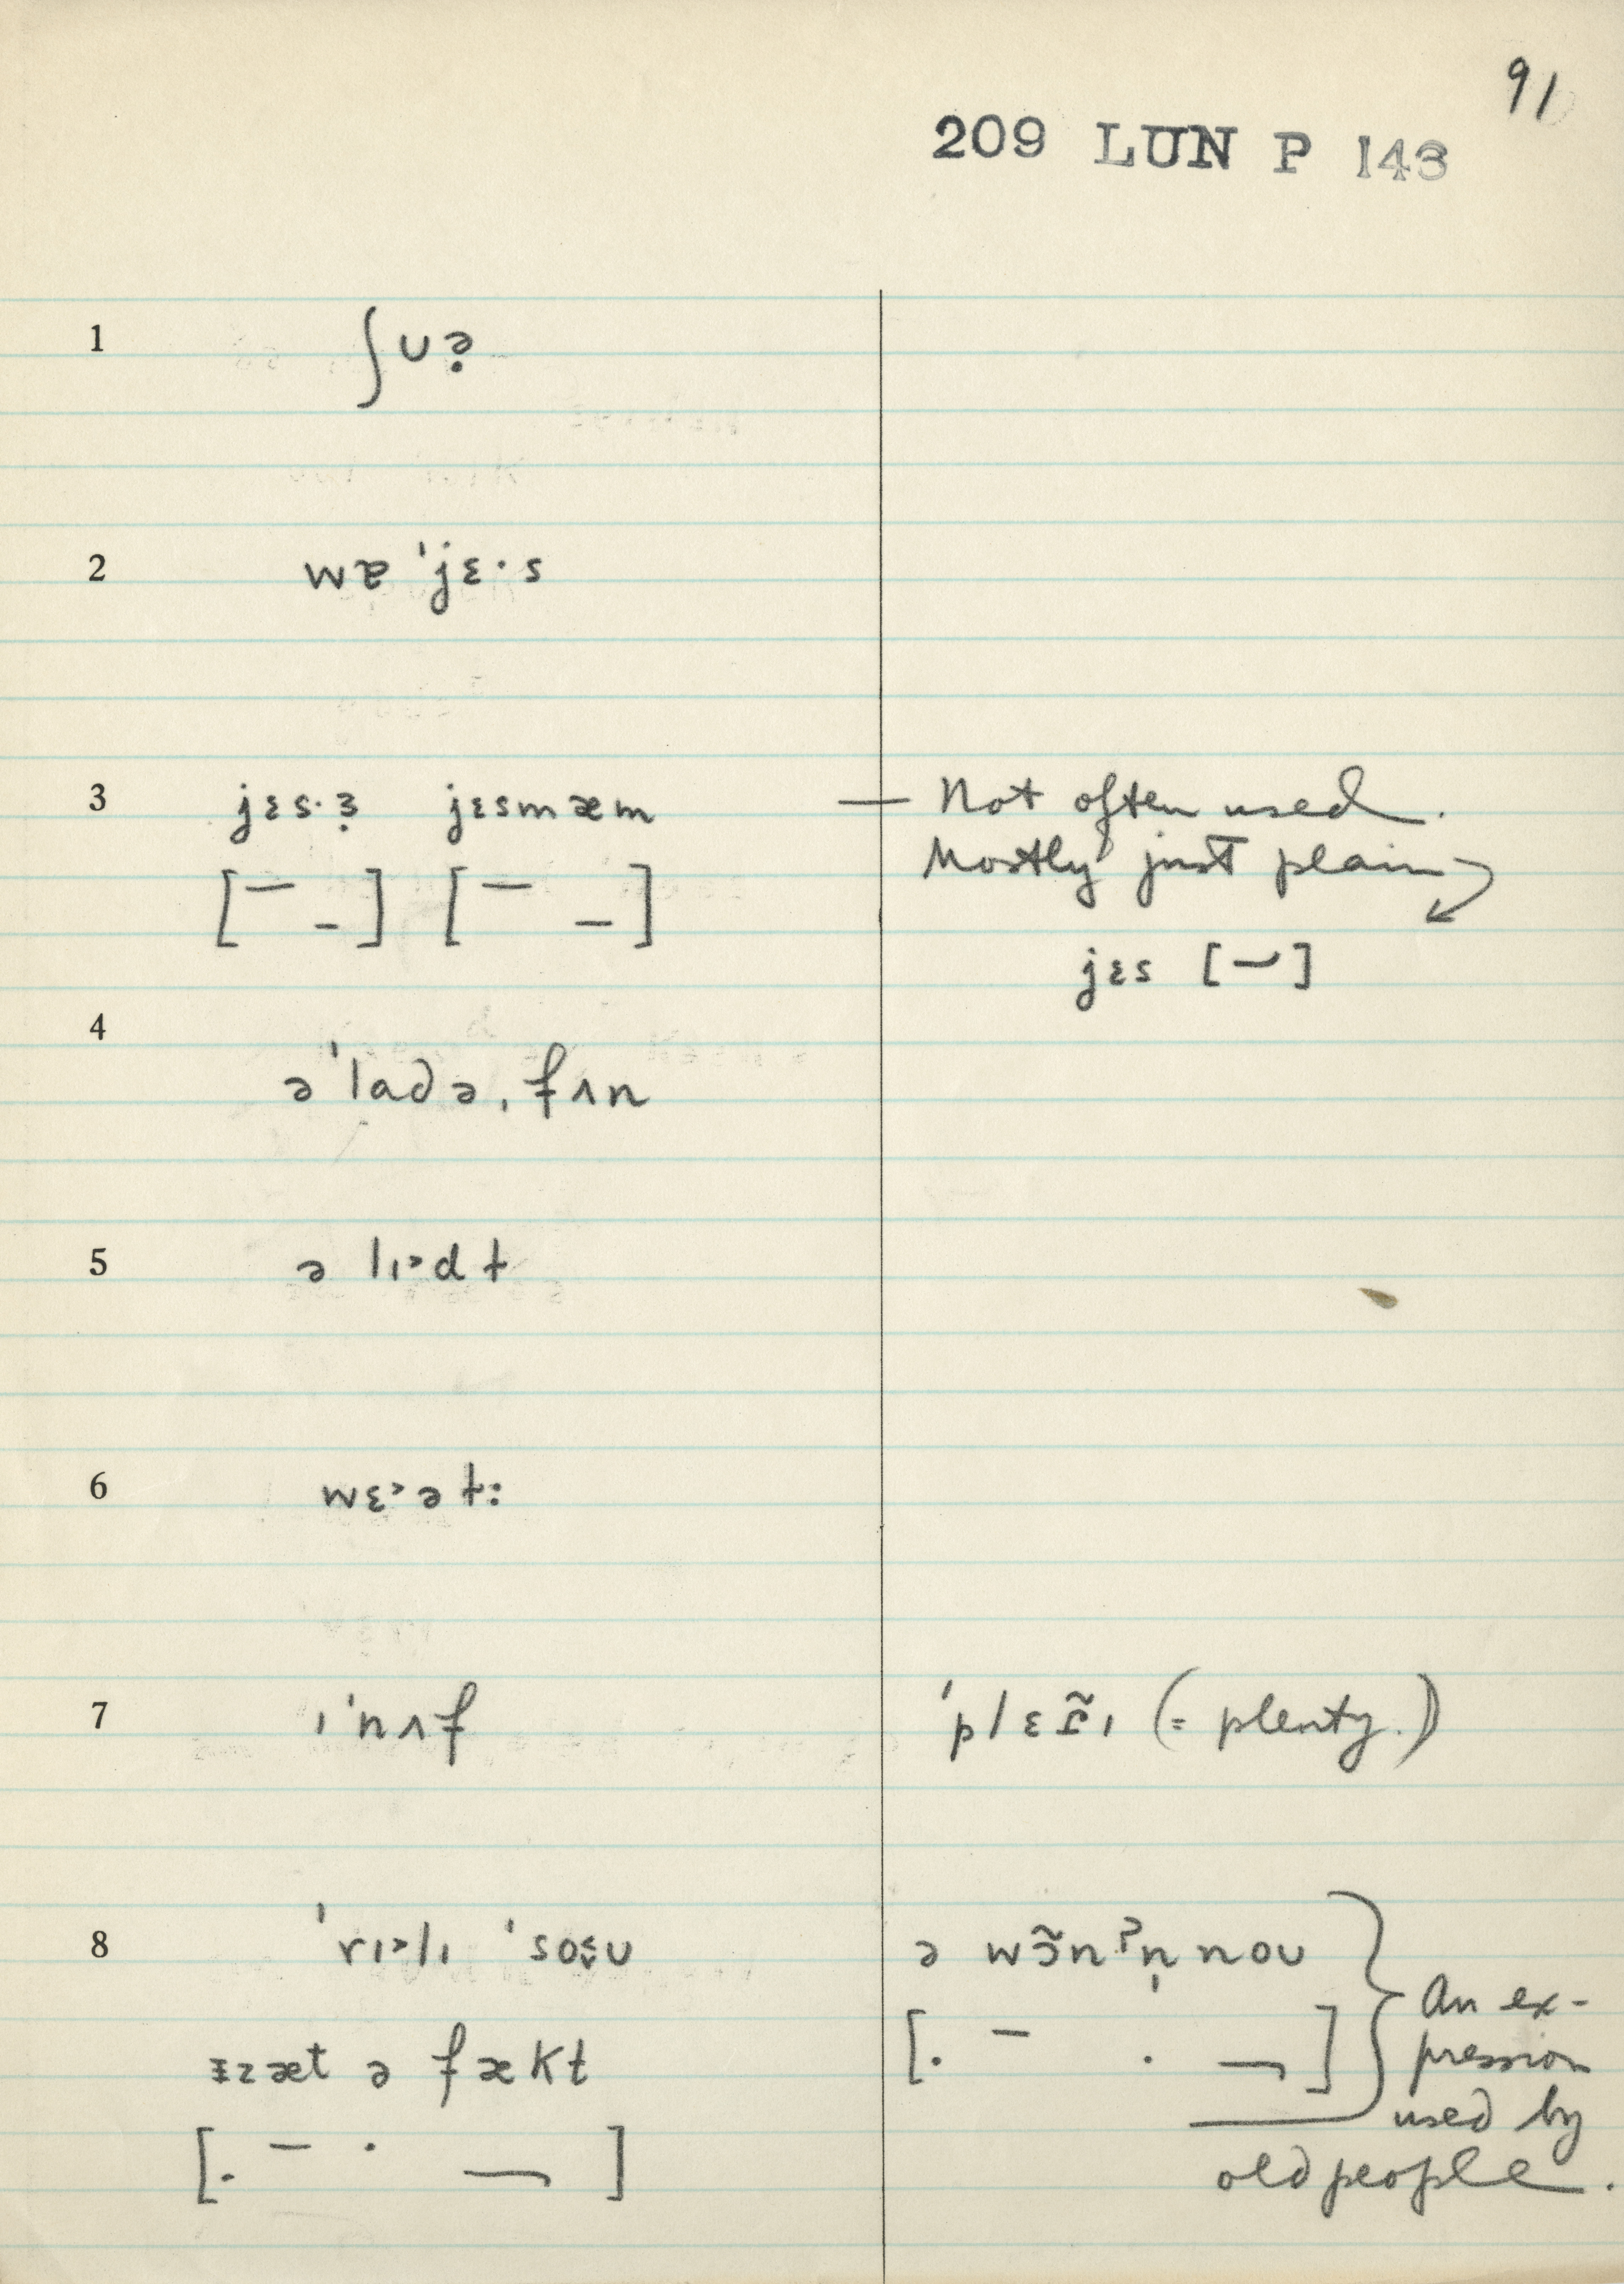 91
209 LUN P 143
1 ʃʊə̣
2 wɐ ˈjɛ·s
3 jɛs·ɜ̣ jɛsmæm — Not often used.
Mostly just plain
jɛs [ ]
4 əˈladə, fʌn
5 ə lɪ˃dɫ
6 wɛ˃əɫ:
7 ɪˈnʌf ˈplɛɾ̃ɪ (= plenty.)
8 ˈrɪ˃lɪ ˈso ə wɔ̃nˀn̩ noʊ
An ex-
ᵻzæt ə fækt pression
used by
old people.